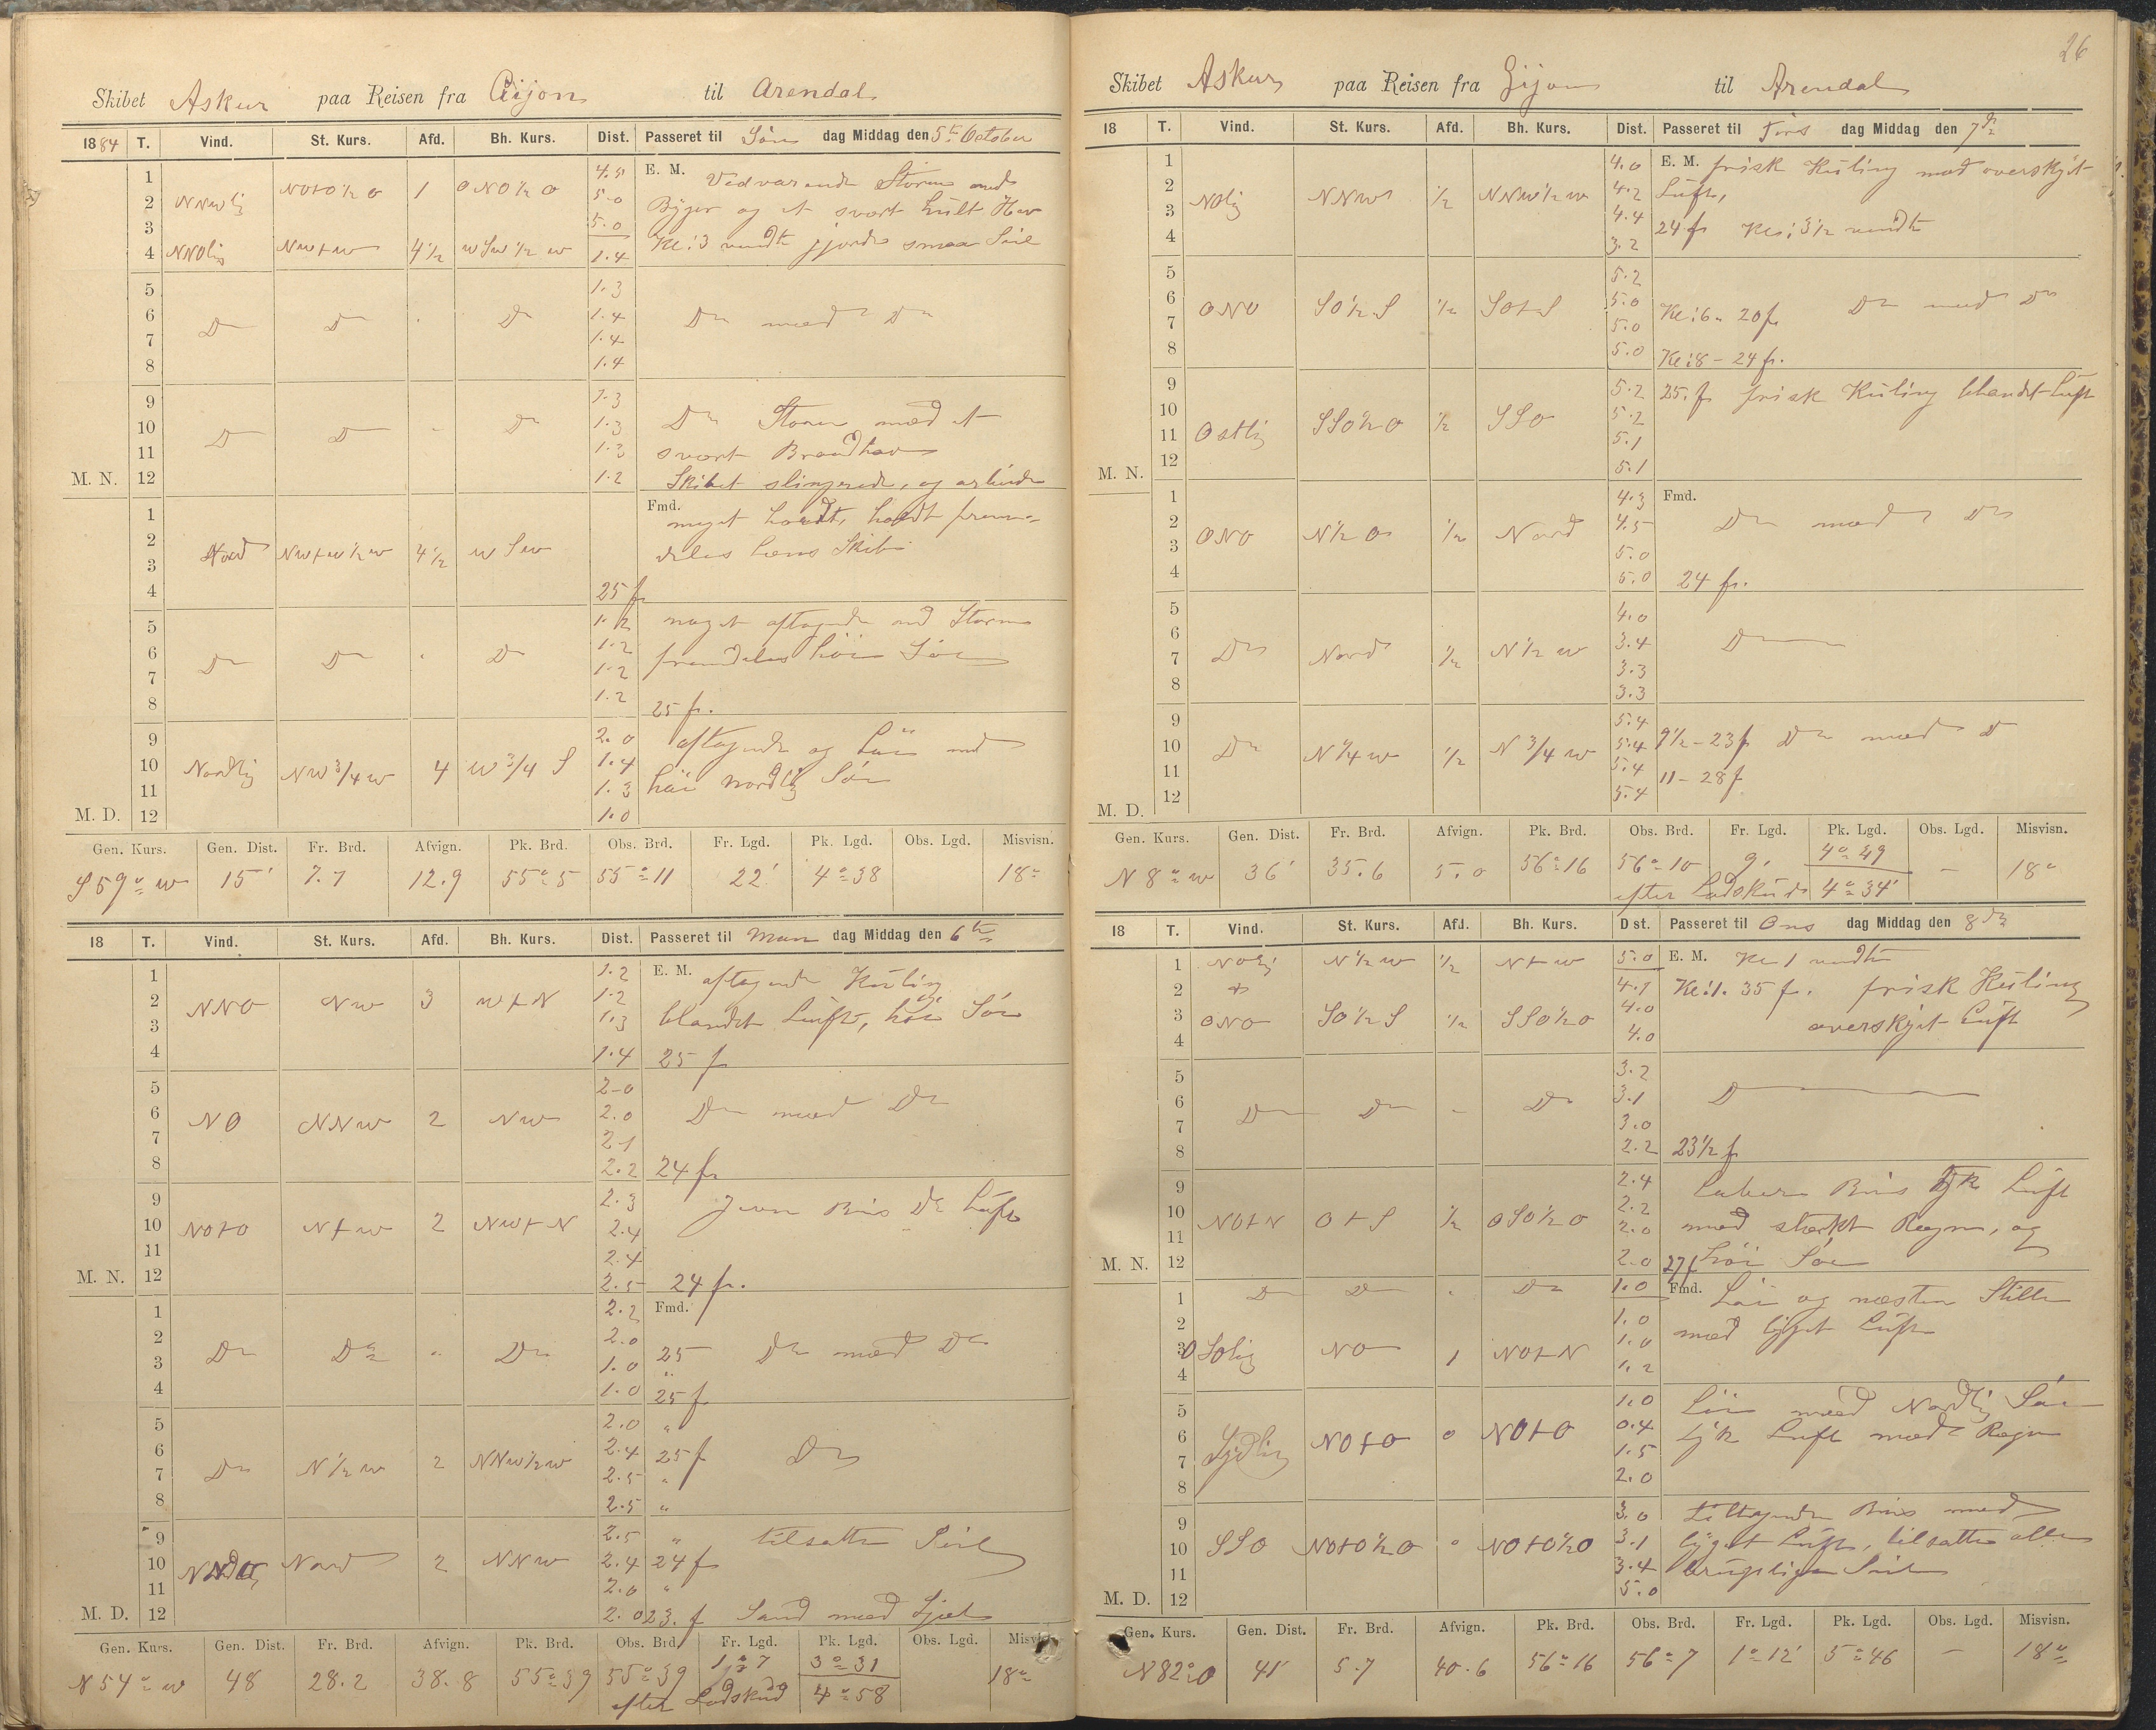 26
Skibet Askur paa Reisen fra Gijon til Arendal
1884 T. Vind. St. Kurs. Afd. Bh. Kurs. Dist. Passeret til Søn dag Middag den 5te October
1 4.5 E. M. Vedvarende Storm med
2 NNWlig NOtO½O 1 ONO½O 5.0 Byger og et svært hult Hav
3 5.0
4 NNOlig NWtW 4½ WSW½W 1.4 Kl: 3 vendte gjorde smaa Seil
5 1.3
6 Do Do " Do 1.4 Do med Do
7 1.4
8 1.4
9 1.3
10 Do Do " Do 1.3 Do Storm med et
11 1.3 svært Braadhav
M. N. 12 1.2 Skibet slingrede, og arbeidede
1 Fmd. meget haardt, holdt frem-
2 Nord NWtW½W 4½ WSW deles læns Skib
3
4 25 f
5 1.2 noget aftagende med Storm
6 Do Do " Do 1.2 fremdeles høi Sø
7 1.2
8 1.2 25 f.
9 2.0 aftagende og Løi med
10 Nordlig NW¾W 4 W¾S 1.4
11 1.3 høi nordlig Sø
M. D. 12 1.0
Gen. Kurs. Gen. Dist. Fr. Brd. Afvign. Pk. Brd. Obs. Brd. Fr. Lgd. Pk. Lgd. Obs. Lgd. Misvisn.
S59°W 15' 7.7 12.9 55°5 55°11 22' 4°38 18°
18 T. Vind. St. Kurs. Afd. Bh. Kurs. Dist. Passeret til Man dag Middag den 6te
1 1.2 E. M. aftagende Kuling
2 NNO NW 3 WtN 1.2
3 1.3 blandet Luft, høi Sø
4 1.4 25 f
5 2.0
6 NO NNW 2 NW 2.0 Do med Do
7 2.1
8 2.2 24 f
9 2.3 Jevn Bris Do Luft
10 NOtO NtW 2 NWtN 2.4
11 2.4
M. N. 12 2.5 24 f.
1 2.2 Fmd.
2 Do Do " Do 2.0
3 1.0 25 Do med Do
4 1.0 25 f
5 2.0 "
6 Do N½W 2 NNW½W 2.4 25 f Do
7 2.5 "
8 2.5 "
9 2.5 " tilsatte Seil
10 Nord 2 NNW 2.4 24 f
11 2.0 "
M. D. 12 2.0 23. f Sand med Skjæl
Gen. Kurs. Gen. Dist. Fr. Brd. Afvign. Pk. Brd. Obs. Brd. Fr. Lgd. Pk. Lgd. Obs. Lgd. Misvisn.
N54°W 48 28.2 38.8 55°39 55°39 1°7 3°31 18°
efter Lodskud 4°58
Skibet Askur paa Reisen fra Gijon til Arendal
18 T. Vind. St. Kurs. Afd. Bh. Kurs. Dist. Passeret til Tirs dag Middag den 7de
1 4.0 E. M. frisk Kuling med overskyet
2 NOlig NNW ½ NNW½W 4.2 Luft,
3 4.4 24 f Kl: 3½ vendte
4 3.2
5 5.2
6 ONO SO½S ½ SOtS 5.0 Kl: 6 - 20 f. Do med Do
7 5.0
8 5.0 Kl: 8 - 24 f.
9 5.2 25. f frisk Kuling blandet Luft
10 5.2
11 Ostlig SSO½O ½ SSO 5.1
M. N. 12 5.1
1 4.3 Fmd.
2 ONO N½O ½ Nord 4.5 Do med Do
3 5.0
4 5.0 24 f.
5 4.0
6 Do Nord ½ N½W 3.4 Do
7 3.3
8 3.3
9 5.4
10 Do N¼W ½ N¾W 5.4 9½ - 23 f Do med Do
11 5.4 11 - 28 f
M. D. 12 5.4
Gen. Kurs. Gen. Dist. Fr. Brd. Afvign. Pk. Brd. Obs. Brd. Fr. Lgd. Pk. Lgd. Obs. Lgd. Misvisn.
N8°W 36' 35.6 5.0 56°16 56°10 9' 4°49 — 18°
efter Lodskud 4°34'
18 T. Vind. St. Kurs. Afd. Bh. Kurs. Dist. Passeret til Ons dag Middag den 8de
1 NOlig N½W ½ NtW 5.0 E. M. Kl 1 vendte
2 4.1 Kl: 1. 35 f. frisk Kuling
3 ONO SO½S ½ SSO½O 4.0 overskyet Luft
4 4.0
5 3.2
6 Do Do " Do 3.1 Do
7 3.0
8 2.2 23½ f
9 2.4 Laber Bris tyk Luft
10 NOtN OtS ½ OSO½O 2.2
11 2.0 med stærkt Regn, og
M. N. 12 2.0 27 f høi Sø
1 Do Do " Do 1.0 Fmd. Løi og næsten Stille
2 1.0 med tyget Luft
3 OSOlig NO 1 NOtN 1.0
4 1.2
5 1.0 Løi med Nordlig Sø
6 Sydlig NOtO 0 NOtO 0.4 tyk Luft med Regn
7 1.5
8 2.0
9 3.0 tiltagende Bris med
10 SSO NOtO½O 0 NOtO½O 3.1 tyget Luft, tilsatte alle
11 3.4 brugelige Seil
M. D. 12 5.0
Gen. Kurs. Gen. Dist. Fr. Brd. Afvign. Pk. Brd. Obs. Brd. Fr. Lgd. Pk. Lgd. Obs. Lgd. Misvisn.
N82°O 41' 5.7 40.6 56°16 56°7 1°12' 5°46 — 18°